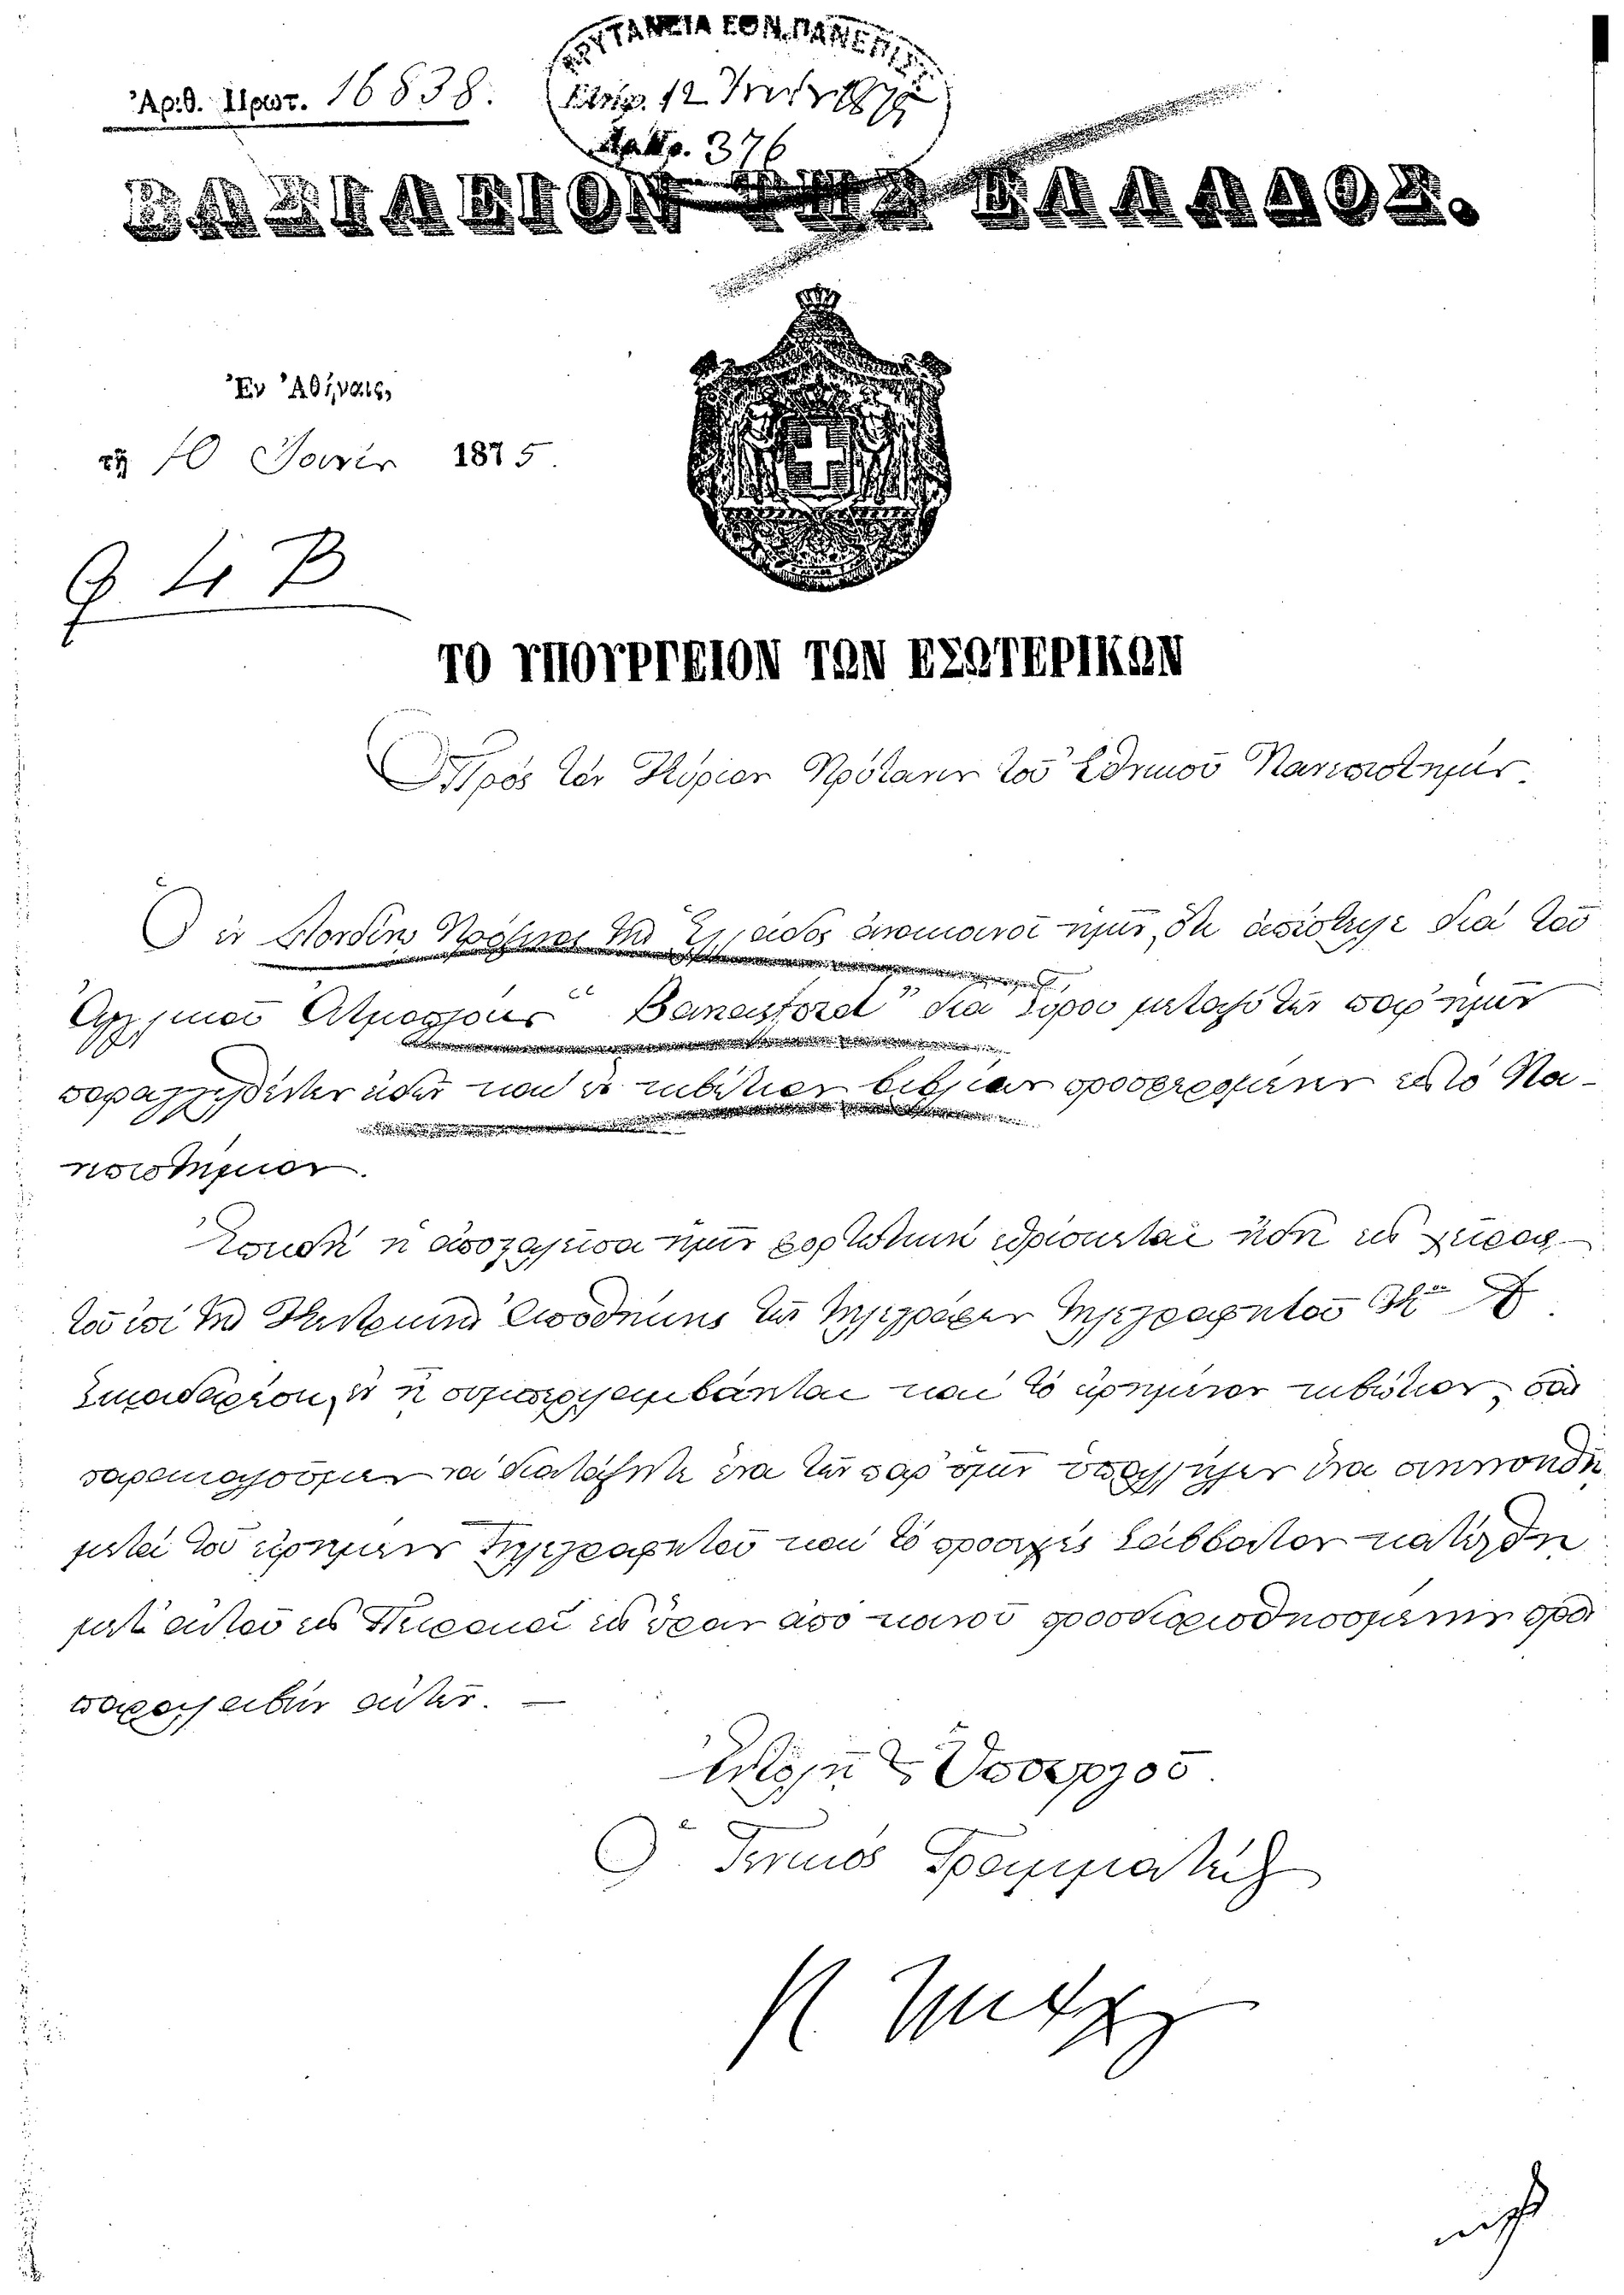 Ἀριθ. Πρωτ. 16838.
ΠΡΥΤΑΝΕΙΑ ΕΘΝ. ΠΑΝΕΠΙΣΤ.
12 1875
Αριθ. 376
ΒΑΣΙΛΕΙΟΝ ΤΗΣ ΕΛΛΑΔΟΣ.
Ἐν Ἀθήναις,
τῇ 10 Ἰουνίου 1875.
ΤΟ ΥΠΟΥΡΓΕΙΟΝ ΤΩΝ ΕΣΩΤΕΡΙΚΩΝ
Πρὸς τὸν Κύριον Πρύτανιν τοῦ Ἐθνικοῦ Πανεπιστημίου.
Ὁ ἐν Λονδίνῳ Πρόξενος τῆς Ἑλλάδος ἀνακοινοῖ ἡμῖν, ὅτι ἀπέστειλε διὰ τοῦ
Ἀγγλικοῦ Ἀτμοπλοίου " " διὰ Σύρου μεταξὺ τῶν παρ' ἡμῶν
παραγγελθέντων εἰδῶν καὶ ἓν κιβώτιον βιβλίων προσφερομένων εἰς τὸ Πα-
νεπιστήμιον.
Ἐπειδὴ ἡ ἀποσταλεῖσα ἡμῖν φορτωτικὴ εὑρίσκεται ἤδη εἰς χεῖρας
τοῦ ἐπὶ τῆς Κεντρικῆς Ἀποθήκης τῶν Τηλεγράφων Τηλεγραφητοῦ Κου
ἐν ᾗ συμπεριλαμβάνεται καὶ τὸ εἰρημένον κιβώτιον, σᾶς
παρακαλοῦμεν νὰ διατάξητε ἕνα τῶν παρ' ὑμῖν ὑπαλλήλων ἵνα συνεννοηθῇ
μετὰ τοῦ εἰρημένου Τηλεγραφητοῦ καὶ τὸ προσεχὲς Σάββατον κατέλθῃ
μετ' αὐτοῦ εἰς Πειραιᾶ εἰς ὥραν ἀπὸ κοινοῦ προσδιορισθησομένην πρὸς
παραλαβὴν αὐτῶν. —
Ἐντολῇ τοῦ Ὑπουργοῦ.
Ὁ Γενικὸς Γραμματεὺς